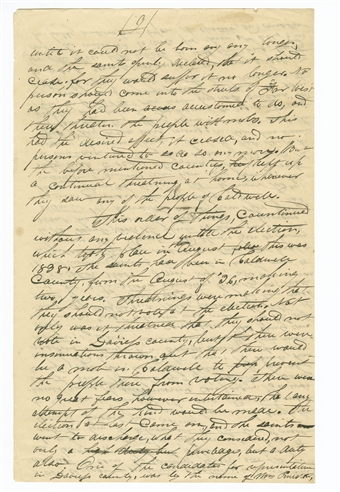 (9)
until it could not be born any any longer,
and the saints firmly decided, that it should
cease. for they would suffer it no longer. no
persons should come into the streets of Far West
as they had been accustomed to do, and
threaten the people with mobs. This
had the desired effect, it ceased, and no
persons ventured to do so any more. But
the before mentioned counties, kept up
a continual threatning at home, wherever
they saw any of the people of Caldwell.
This order of things, Countinued
without any violence until the election
which took place in August this was
1838. The saints had been in Caldwell
County, from the August of '36, making
two years. Threatnings were making that
they should not vote at the election, not
only was it threatened that they should not
vote in Davies county, but there were
insinuations thrown out that there would
be a mob in Caldwell to prevent
the people there from voting. There was
no great fears, however entertained, that any
attempt of the kind would be made. The
election at last came on, and the saints
went to discharge, what they considered, not
only a priveleges, but a duty
also. One of the candidates for representative
in Davies county, was by the name of